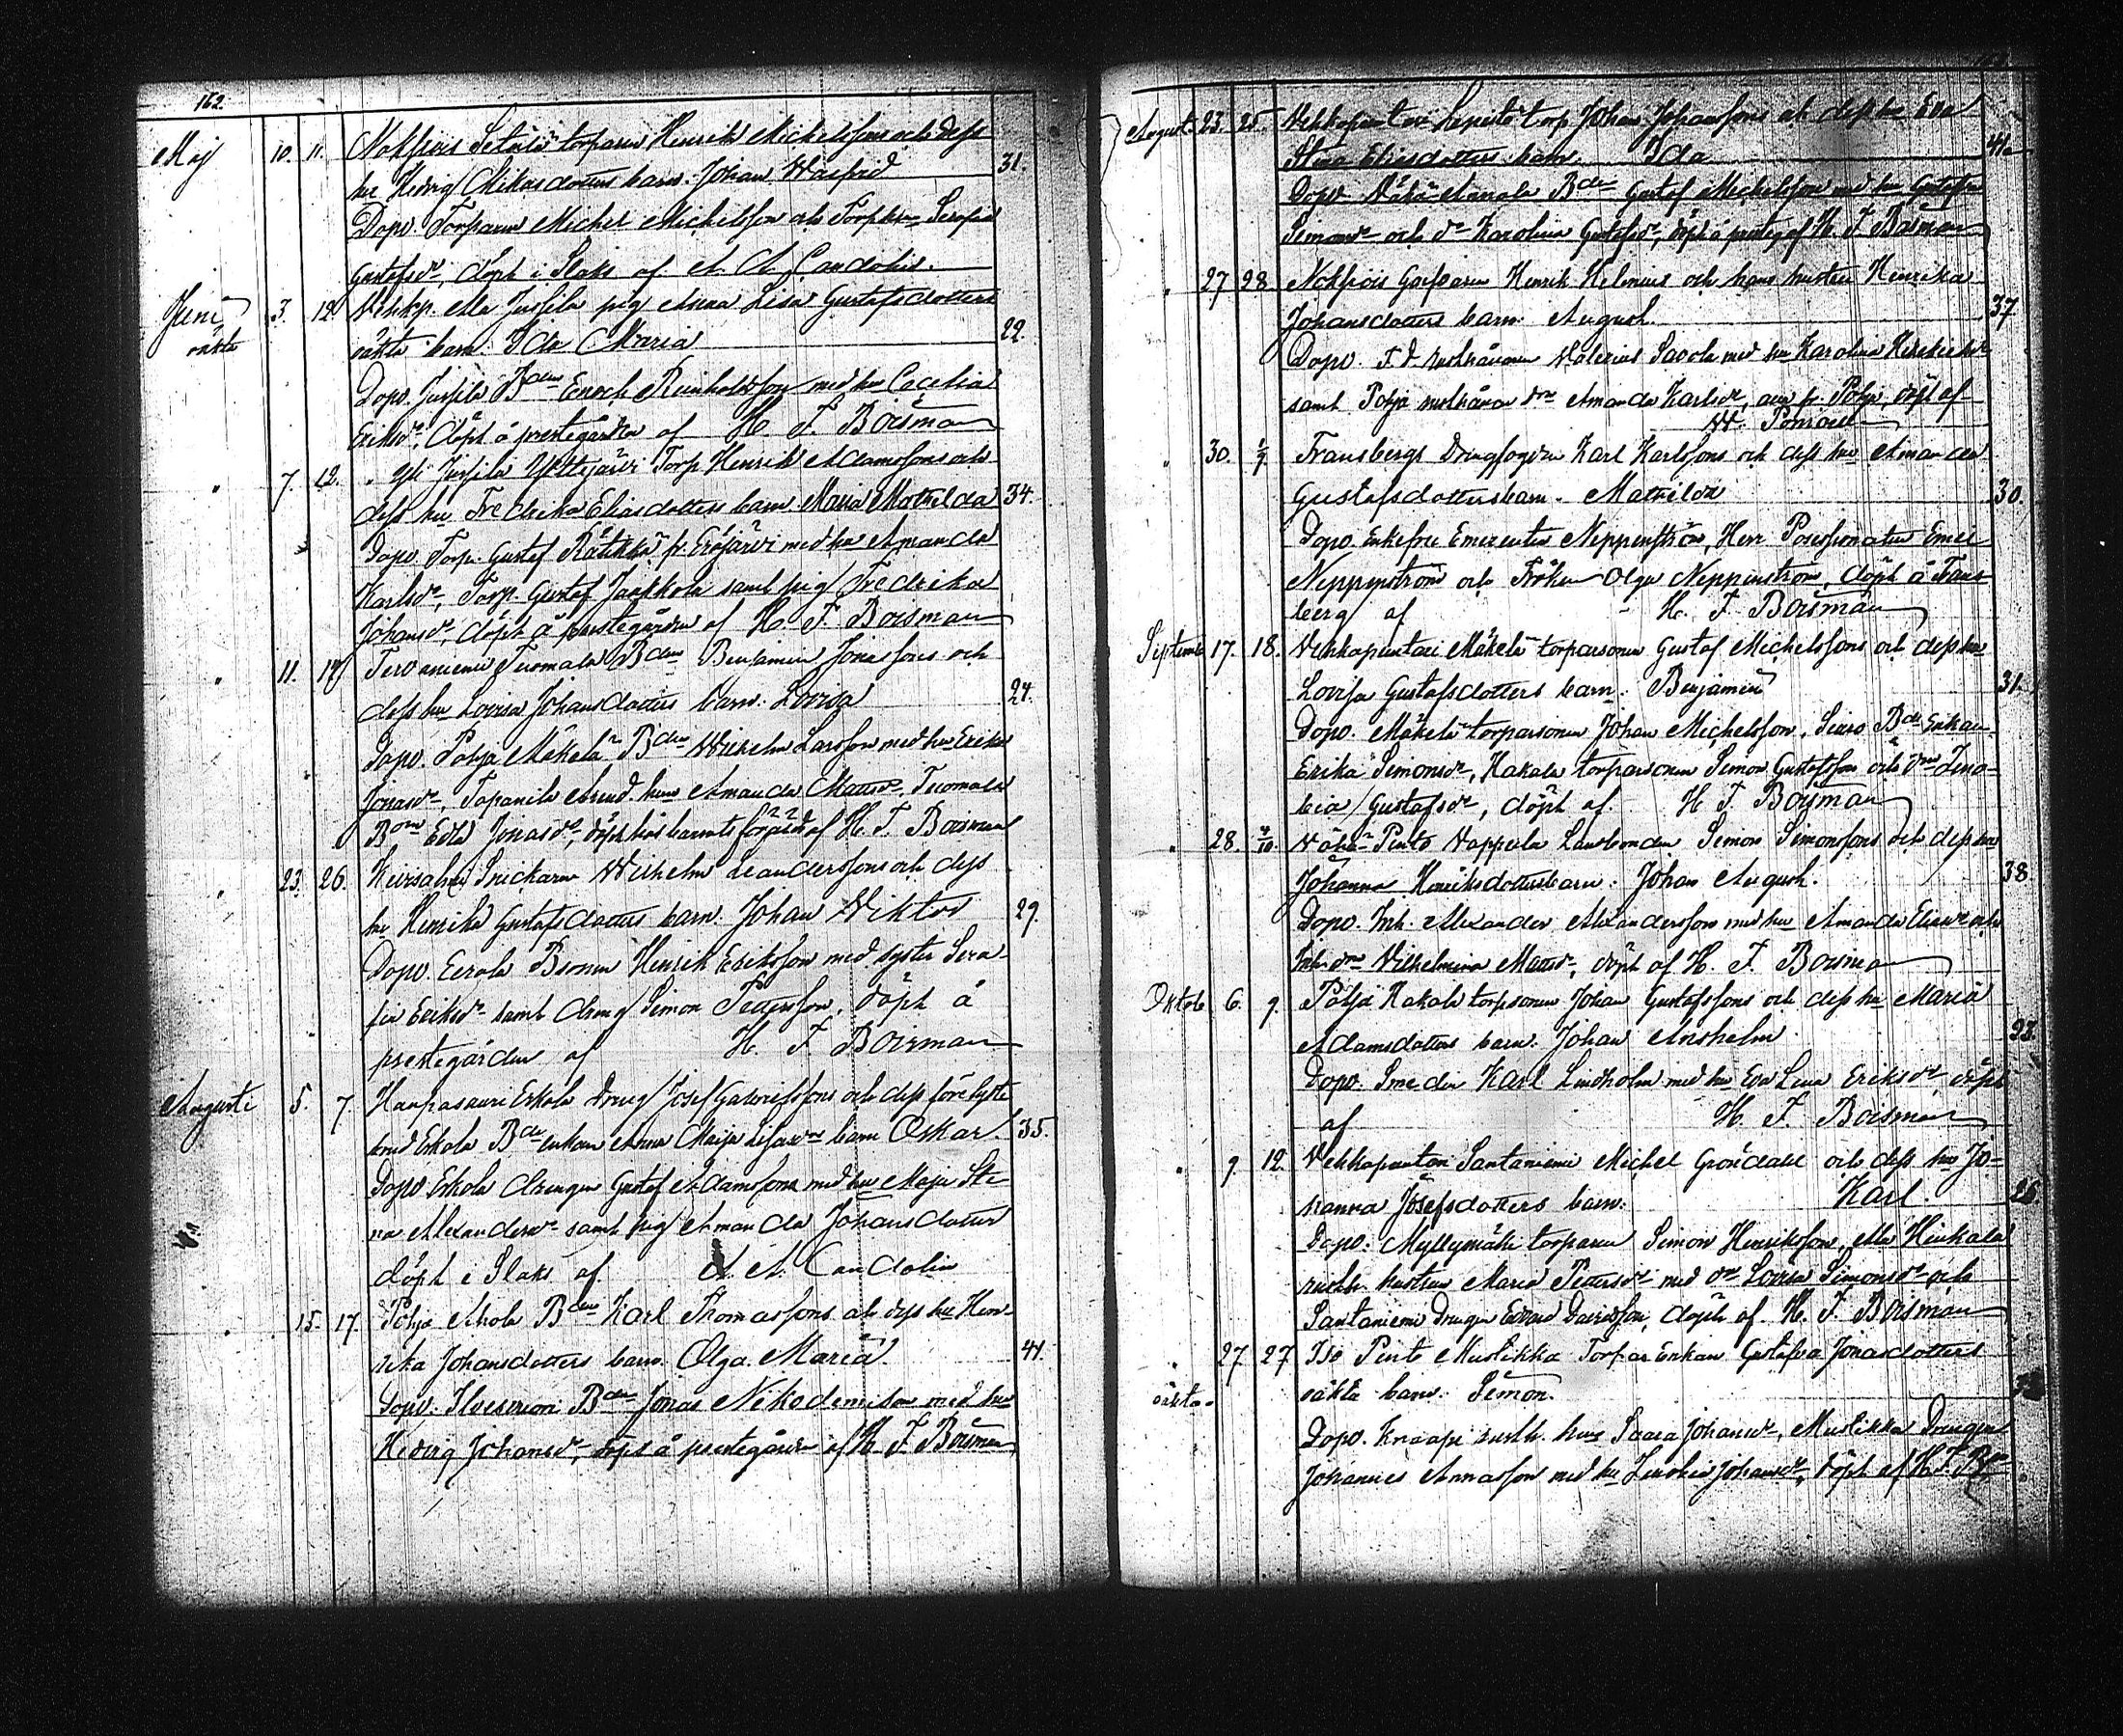 162.
Maj 10. 11. Nokspois Setälä torparen Henrik Michelssons och dess
hu Hedvig Mikaisdotters barn. Johan Walfrid 31.
Dopv. Torparen Michel Michelsson och Torphn Serafia
Gustafsdr, döpt i Slaks af A. A. Candolin.
Juni 3. 12. Vehkp. Ala Jussila pig Anna Lisa Gustafsdotters
oäkta oäkta barn: Ida Maria 22.
Dopv. Jussila Bden Enoch Reinholdsson med hu Cecelia
Eriksdr, döpt å prestegården af H. F. Boisman
" 7. 12. " Yli Jussila Torp Henrik Adamssons och
dess hu Fredrika Eliasdotters barn Maria Mathilda 34.
Dopv. Torp. Gustaf Rätikkä fr. Eräjärvi med hu Amanda
Karlsdr, Torp. Gustaf Jaakkola samt pig Fredrika
Johansdr, döpt å prestegården af H. F. Boisman
" 11. 17 Tervaniemi Tuomala Bden Benjamin Jonassons och
dess hu Lovisa Johansdotters barn. Lovisa 24.
Dopv. Pohja Mäkelä Bden Wilhelm Larsson med hu Erika
Jonasdr, Tapanila hu Amanda Mattsdr, Tuomala
Edla Jonasdr, döpt hos barnets af H. F. Boisman
" 23. 26. Snickaren Wilhelm Leanderssons och dess
hu Henrika Gustafsdotters barn. Johan Wiktor 29.
Dopv. Eerola Bsonen Henrik Eriksson med syster Sera-
fia Eriksdr samt dreng Simon Pettersson, döpt å
prestegården af H. F. Boisman
Augusti 5. 7. Haapasaari Erkola dreng Josef Gabrielssons och dess förelofte
Erkola Bde enkan Anna Maija barn Oskar 35.
Dopv Erkola drengen Gustaf Adamsson med hu Maja Sti-
na Alexandersdr samt pig Amanda Johansdotter
döpt i Slaks af A. A. Candolin
" 15. 17. Pohja Ahola Bden Karl Thomassons och dess hu Hen-
rika Johansdotters barn. Olga Maria 41.
Dopv. Bden Jonas Nikodemisson med hu
Hedvig Johansdr, döpt å prestegården af H. F. Boisman
August 23. 25. Vehkapuntari Lepistö torp Johan Johanssons och dess hu Eva
Stina Eliasdotters barn. Ida 41
Dopv. Vähä Anola Bden Gustaf Michelsson med hu Gustafva
Simonsdr och dr Karolina Gustafsdr, döpt å presteg af H. F. Boisman
" 27 28 Nokspois Garfvaren Henrik Helenius och hans hustru Henrika
Johansdotters barn. August 37.
Dopv. F. d. rusthållaren Valerius Savola med hu Karolina
samt Pohja rusthållar drn Amanda Karlsdr, fr. Pohja, döpt af
30. 1/9. Fransbergs Drengfogden Karl Karlssons och dess hu Amanda
Gustafsdotters barn. Mathilda 30.
Dopv. Enkefru Emerentia Neppenström, Herr Possessionaten Emil
Neppenström och Fröken Olga Neppenström, döpt å Frans-
berg af H. F. Boisman
Septemb 17. 18. Vehkapuntari Mäkelä torparsonen Gustaf Michelssons och dess hu
Lovisa Gustafsdotters barn: Benjamin 31.
Dopv. Mäkelä torparsonen Johan Michelsson, Bde enkan
Erika Simonsdr, Kakala torparsonen Simon Gustafsson och drn Seno-
bia Gustafsdr, döpt af H. F. Boisman
" 28. 4/10. Vähä-Pento Nappila Landbonden Simon Simonssons och dess hu
Johanna Henriksdotters barn: Johan August. 38.
Dopv. Inh. Alexander Alexandersson med hu Amanda Eliasdr och
Inh. drn Wilhelmina Mattsdr, döpt af H. F. Boisman
Oktob 6. 9. Pohja Kakala torpsonen Johan Gustafssons och dess hu Maria
Adamsdotters barn: Johan Anshelm 23.
Dopv. Smeden Karl Lindholm med hu Eva Lena Eriksdr döpt
af H. F. Boisman
" 9. 12. Vehkapuntari Santaniemi Michel Gröndahl och dess hu Jo-
hanna Josefsdotters barn: Karl. 26
Dopv. Myllymäki torparen Simon Henriksson, Ala Hinkala
rusth. hustrun Maria Pettersdr med dr Lovisa Simonsdr och
Santaniemi Drengen Edvard Davidsson, döpt af H. F. Boisman
" 27 27 Iso Pento Mustikka Torpar Enkan Gustafva Jonasdotters
oäkta oäkta barn: Simon.
Dopv. Knaapi rusth. hu Saara Johansdr, Mustikka Drengen
Johannes Annasson med hu Johansdr, döpt af H. F. Bn